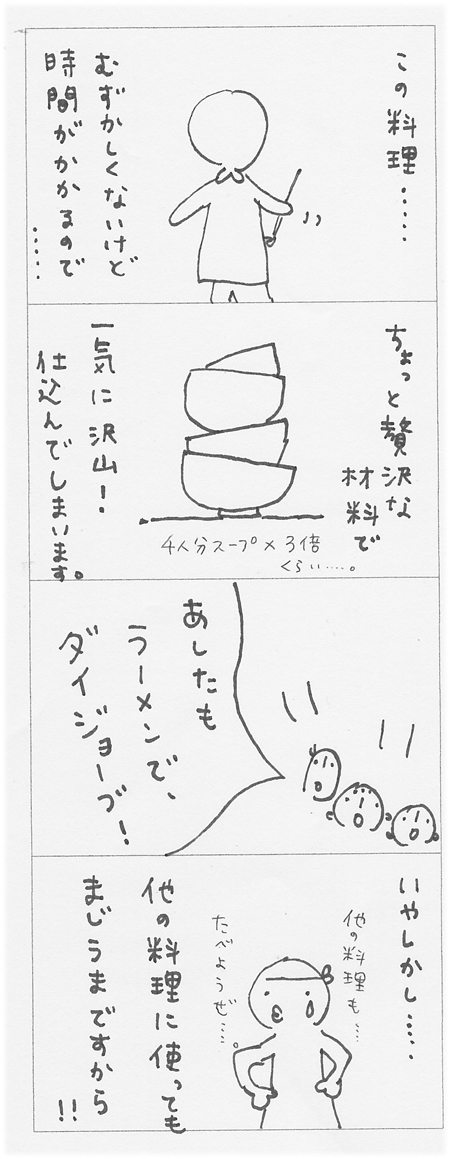 この料理……
むずかしくないけど
時間がかかるので
……
ちょっと贅沢な
材料で
4人分スープ×3倍
くらい……。
一気に沢山!
仕込んでしまいます。
あしたも
ラーメンで、
ダイジョーブ!
いやしかし……
他の料理も…
たべようぜ…。
他の料理に使っても
まじうまですから
!!